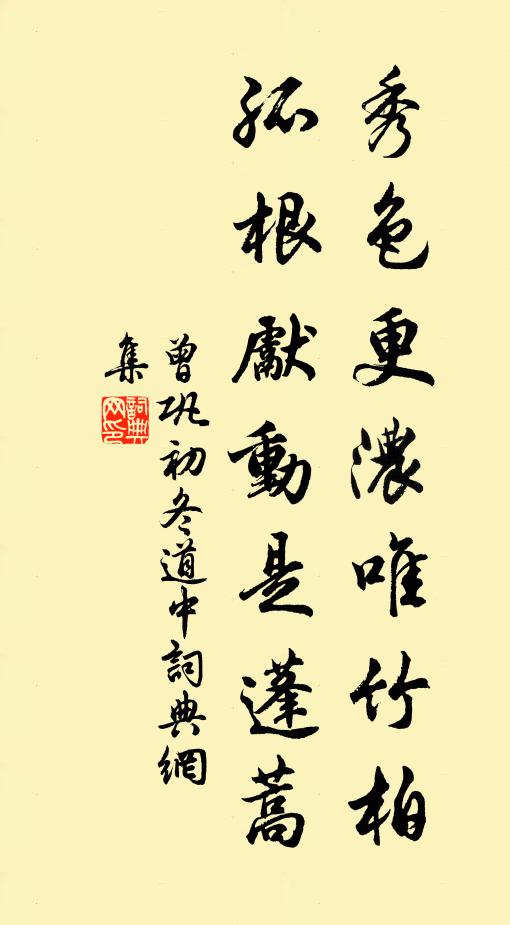 秀色更濃唯竹柏
孤根獻動是蓬蒿
曾巩初冬道中詞典網
集
詞典
网印